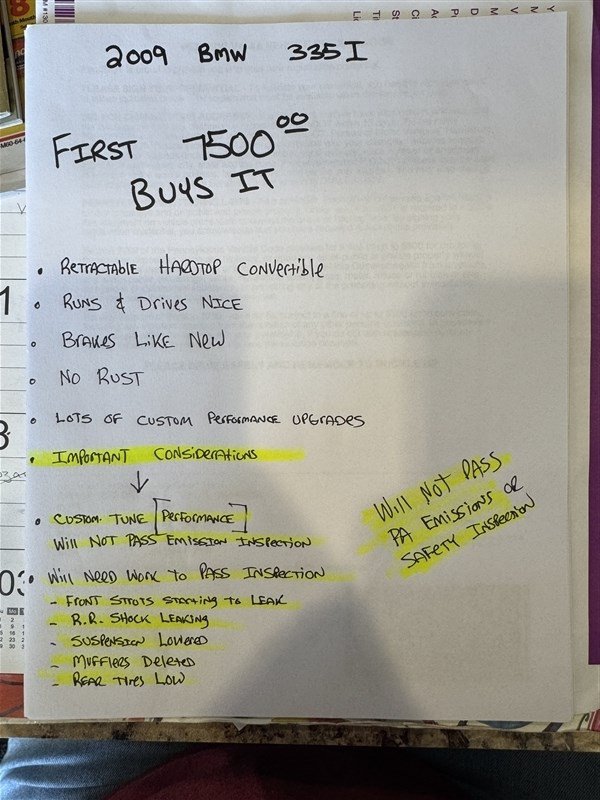 2009 BMW 335I
FIRST 7500 00
BUYS IT
• RETRACTABLE HARDTOP CONVERTIBLE
• RUNS & DRIVES NICE
• BRAKES LIKE NEW
• NO RUST
• LOTS OF CUSTOM PERFORMANCE UPGRADES
• IMPORTANT CONSIDERATIONS
↓
• CUSTOM TUNE [PERFORMANCE]
WILL NOT PASS EMISSION INSPECTION
• WILL NEED WORK TO PASS INSPECTION
- FRONT STRUTS STARTING TO LEAK
- R.R. SHOCK LEAKING
- SUSPENSION LOWERED
- MUFFLERS DELETED
- REAR TIRES LOW
WILL NOT PASS
PA EMISSIONS OR
SAFETY INSPECTION